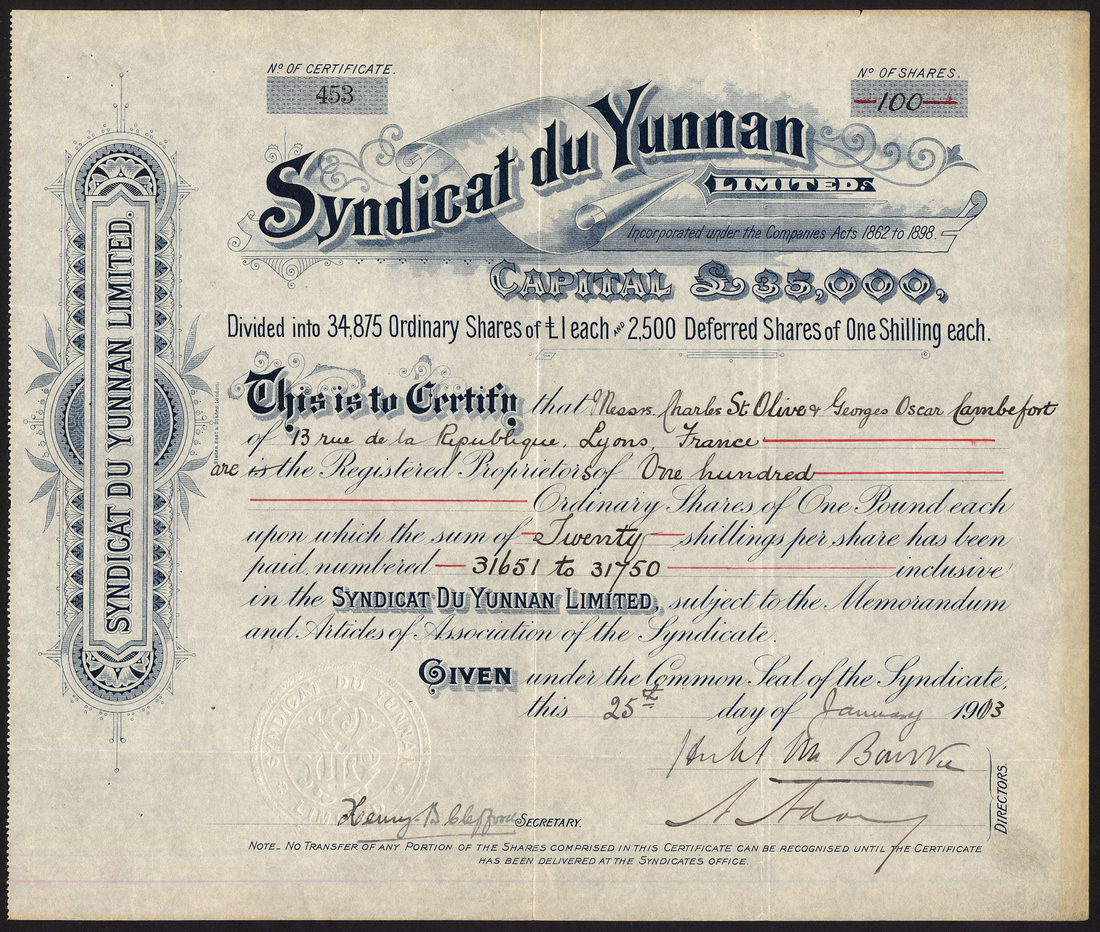 Nº OF CERTIFICATE.
453
Nº OF SHARES.
100
Syndicat du Yunnan
LIMITED.
Incorporated under the Companies Acts 1862 to 1898.
CAPITAL £35,000,
Divided into 34,875 Ordinary Shares of £1 each AND 2,500 Deferred Shares of One Shilling each.
This is to Certify that Messrs. Charles St Olive & Georges Oscar Cambefort
of 13 rue de la Republique, Lyons, France
are is the Registered Proprietors of One hundred
Ordinary Shares of One Pound each
upon which the sum of Twenty shillings per share has been
paid, numbered 31651 to 31750 inclusive
in the SYNDICAT DU YUNNAN LIMITED, subject to the Memorandum
and Articles of Association of the Syndicate.
GIVEN under the Common Seal of the Syndicate,
this 25th day of January 1903
DIRECTORS.
Henry B SECRETARY.
NOTE_ NO TRANSFER OF ANY PORTION OF THE SHARES COMPRISED IN THIS CERTIFICATE CAN BE RECOGNISED UNTIL THE CERTIFICATE
HAS BEEN DELIVERED AT THE SYNDICATES OFFICE.
SYNDICAT DU YUNNAN LIMITED.
SYNDICAT DU YUNNAN